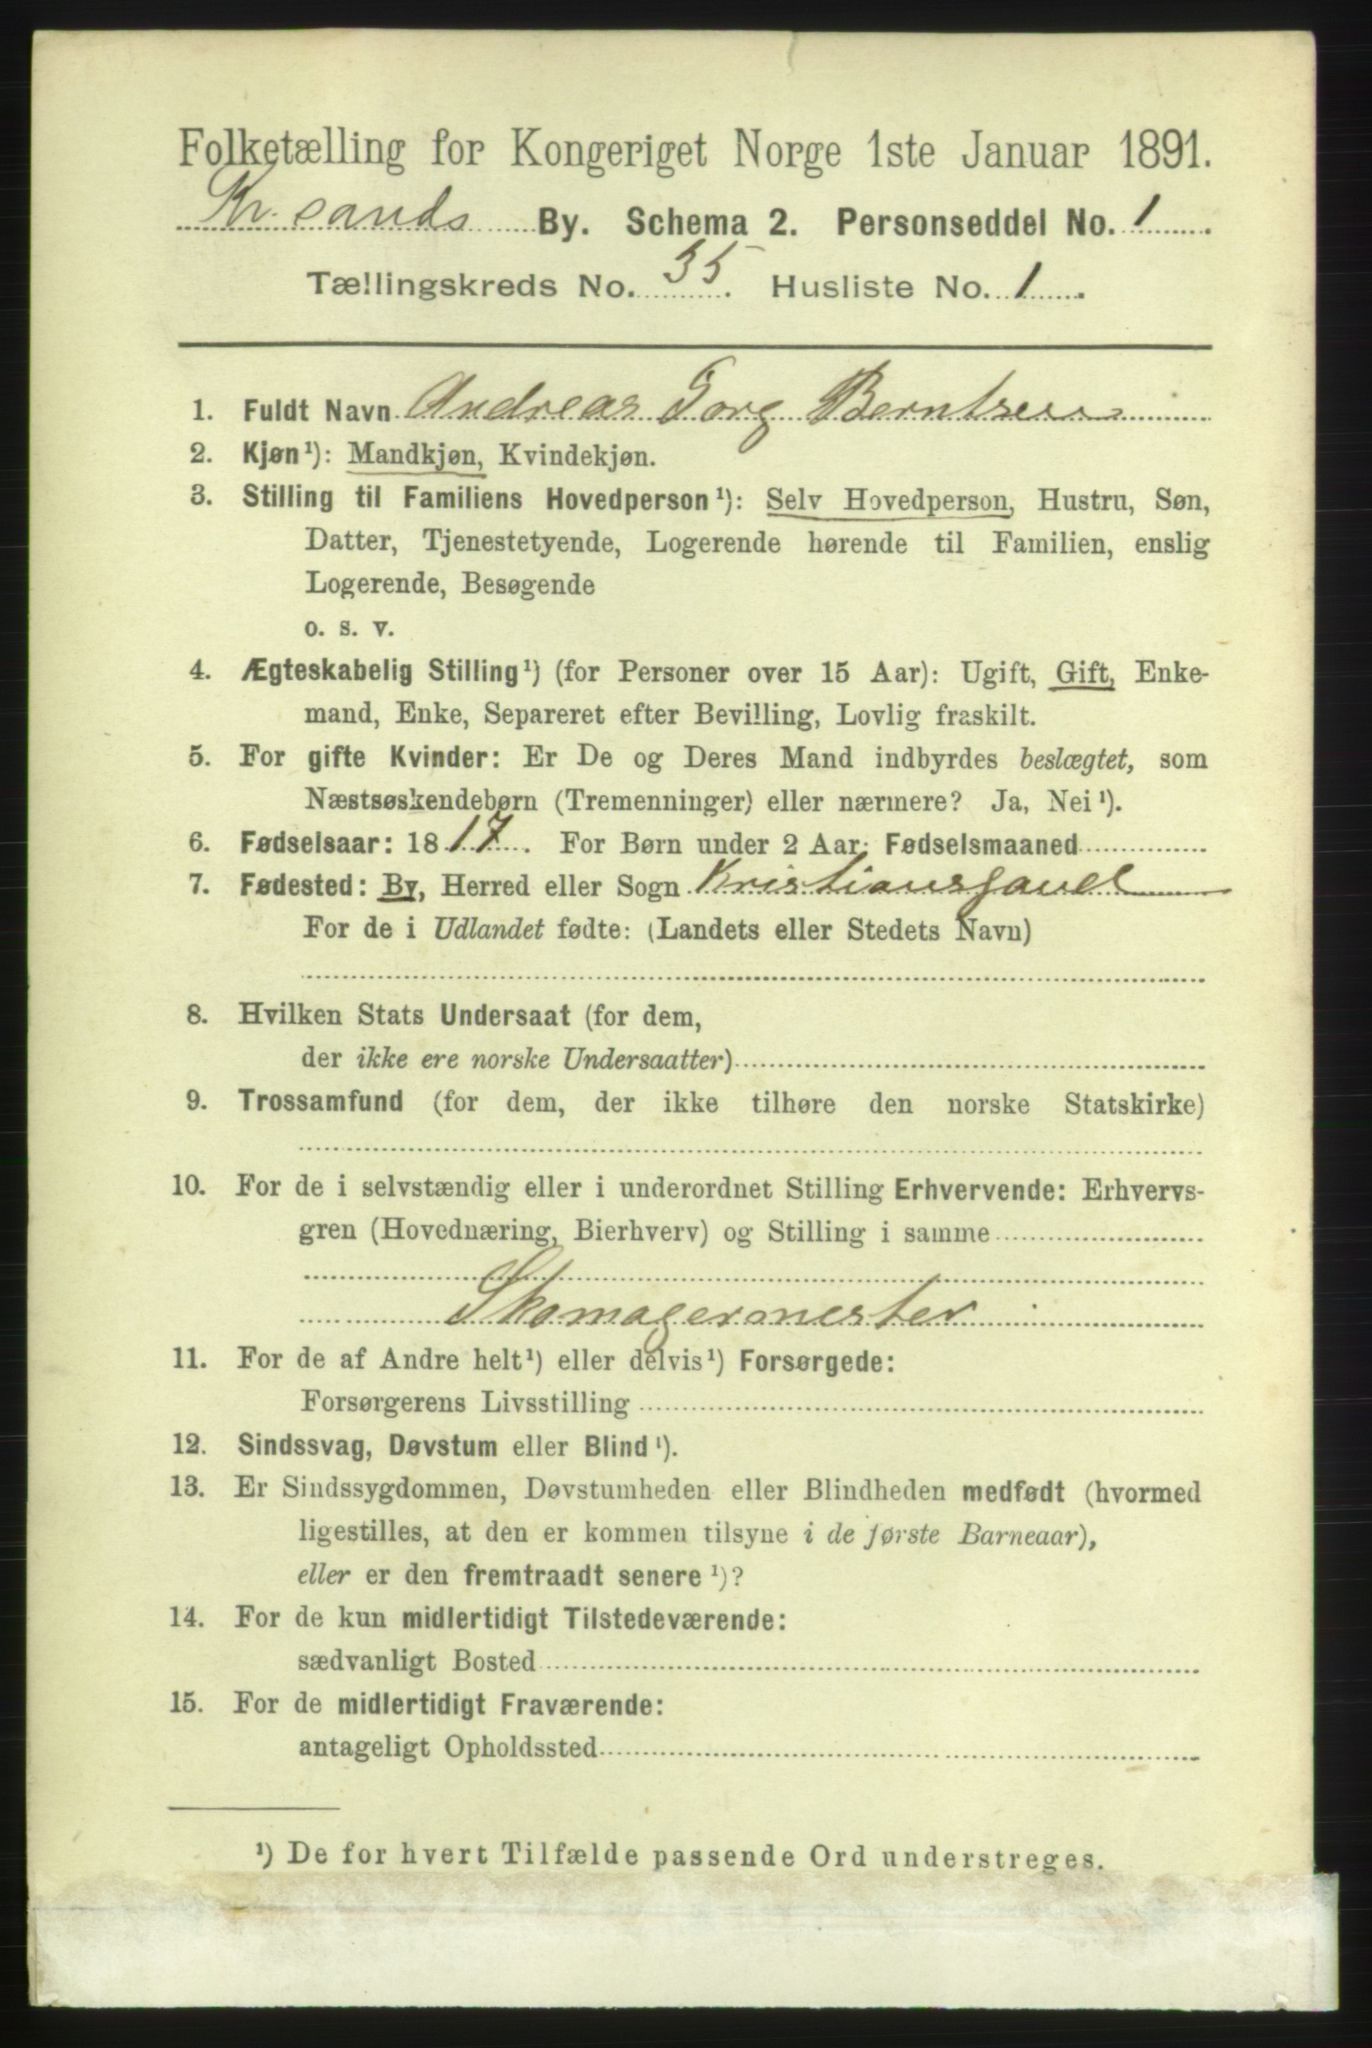 Folketælling for Kongeriget Norge 1ste Januar 1891.
Kr.sands By. Schema 2. Personseddel No. 1.
Tællingskreds No. 35. Husliste No. 1.
1. Fuldt Navn Andreas Jorg Berntsen
2. Kjøn¹): Mandkjøn, Kvindekjøn.
3. Stilling til Familiens Hovedperson¹): Selv Hovedperson, Hustru, Søn,
Datter, Tjenestetyende, Logerende hørende til Familien, enslig
Logerende, Besøgende
o. s. v.
4. Ægteskabelig Stilling¹) (for Personer over 15 Aar): Ugift, Gift, Enke-
mand, Enke, Separeret efter Bevilling, Lovlig fraskilt.
5. For gifte Kvinder: Er De og Deres Mand indbyrdes beslægtet, som
Næstsøskendebørn (Tremenninger) eller nærmere? Ja, Nei¹).
6. Fødselsaar: 1817. For Børn under 2 Aar: Fødselsmaaned
7. Fødested: By, Herred eller Sogn Kristianssand
For de i Udlandet fødte: (Landets eller Stedets Navn)
8. Hvilken Stats Undersaat (for dem,
der ikke ere norske Undersaatter)
9. Trossamfund (for dem, der ikke tilhøre den norske Statskirke)
10. For de i selvstændig eller i underordnet Stilling Erhvervende: Erhvervs-
gren (Hovednæring, Bierhverv) og Stilling i samme
Skomagermester
11. For de af Andre helt¹) eller delvis¹) Forsørgede:
Forsørgerens Livsstilling
12. Sindssvag, Døvstum eller Blind¹).
13. Er Sindssygdommen, Døvstumheden eller Blindheden medfødt (hvormed
ligestilles, at den er kommen tilsyne i de første Barneaar),
eller er den fremtraadt senere¹)?
14. For de kun midlertidigt Tilstedeværende:
sædvanligt Bosted
15. For de midlertidigt Fraværende:
antageligt Opholdssted
¹) De for hvert Tilfælde passende Ord understreges.